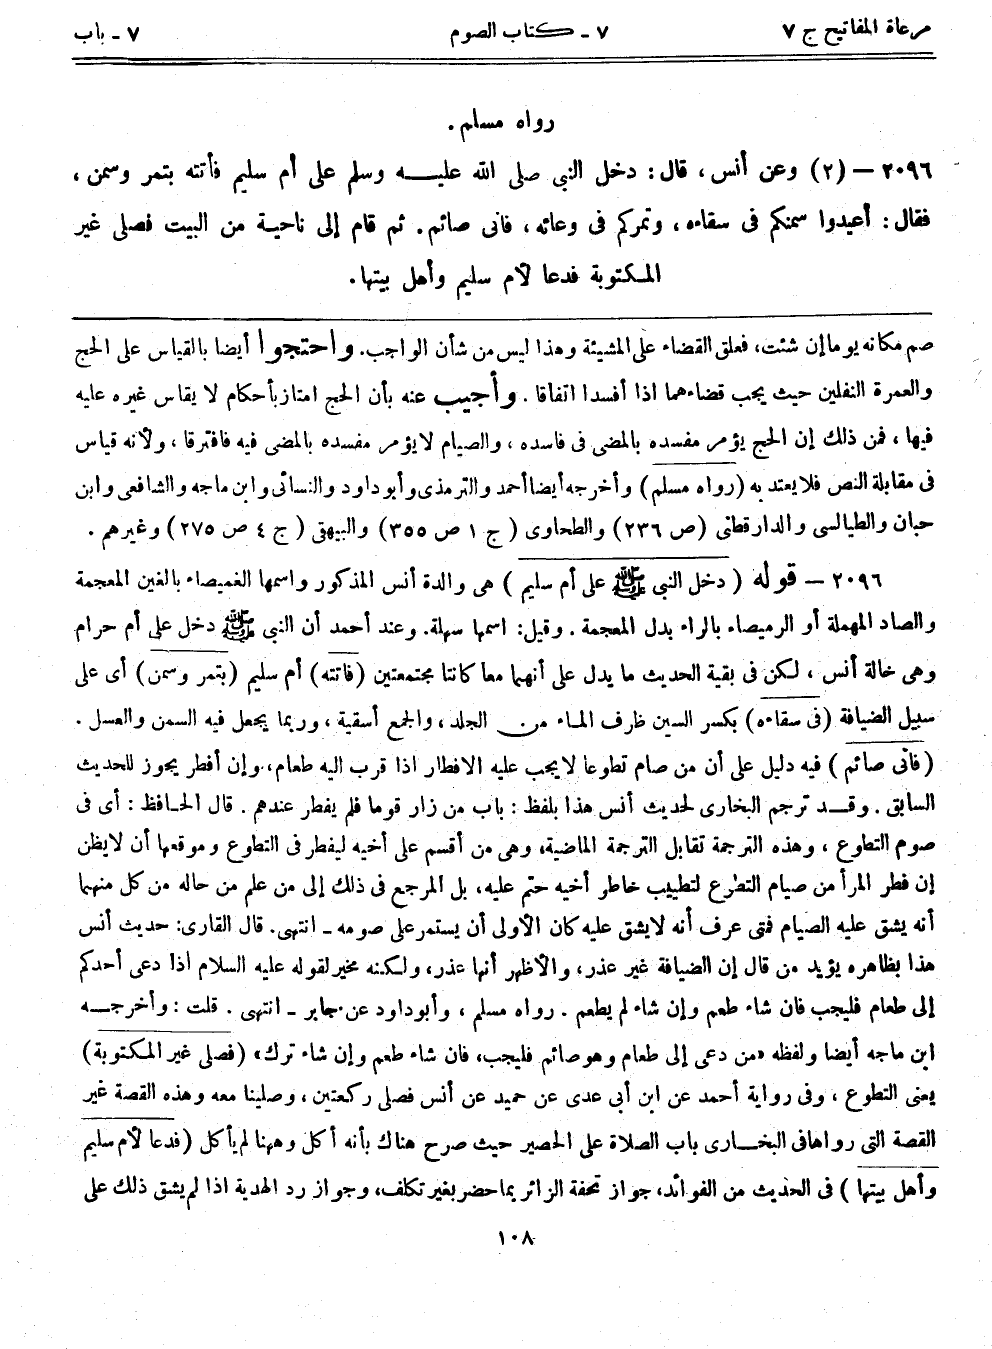 مرعاة المفاتيح ج ٧
٧ ـ كتاب الصوم
٧ ـ باب
رواه مسلم .
٢٠٩٦ – (٢) وعن أنس ، قال : دخل النبى صلى الله عليه وسلم على أم سليم فأتته بتمر وسمن ،
فقال : أعيدوا سمنكم فى سقاءه ، وتمركم فى وعائه ، فانى صائم . ثم قام إلى ناحية من البيت فصلى غير
المكتوبة فدعا لأم سليم وأهل بيتها .
صم مكانه يوما إن شئت، فعلق القضاء على المشيئة وهذا ليس من شأن الواجب. واحتجوا أيضا بالقياس على الحج
والعمرة النفلين حيث يجب قضاءهما اذا أفسدا اتفاقا . وأجيب عنه بأن الحج امتاز بأحكام لا يقاس غيره عليه
فيها ، فمن ذلك إن الحج يؤمر مفسده بالمضى فى فاسده ، والصيام لا يؤمر مفسده بالمضى فيه فافترقا ، ولأنه قياس
فى مقابلة النص فلا يعتد به (رواه مسلم) وأخرجه أيضا أحمد والترمذى وأبو داود والنسائى وابن ماجه والشافعى وابن
حبان والطيالسى والدارقطنى (ص ٢٣٦) والطحاوى ( ج ١ ص ٣٥٥) والبيهقى ( ج ٤ ص ٢٧٥) وغيرهم .
٢٠٩٦ – قوله ( دخل النبى ﷺ على أم سليم ) هى والدة أنس المذكور واسمها الغميصاء بالغين المعجمة
والصاد المهملة أو الرميصاء بالراء بدل المعجمة . وقيل: اسمها سهلة. وعند أحمد أن النبى ﷺ دخل على أم حرام
وهى خالة أنس ، لكن فى بقية الحديث ما يدل على أنهما معا كانتا مجتمعتين (فاتته) أم سليم (بتمر وسمن) أى على
سبيل الضيافة (فى سقاءه) بكسر السين ظرف الماء من الجلد ، والجمع أسقية ، وربما يجعل فيه السمن والعسل .
(فانى صائم) فيه دليل على أن من صام تطوعا لا يجب عليه الافطار اذا قرب اليه طعام، وإن أفطر يجوز للحديث
السابق . وقد ترجم البخارى لحديث أنس هذا بلفظ : باب من زار قوما فلم يفطر عندهم . قال الحافظ : أى فى
صوم التطوع ، وهذه الترجمة تقابل الترجمة الماضية، وهى من أقسم على أخيه ليفطر فى التطوع وموقعها أن لا يظن
إن فطر المرأ من صيام التطوع لتطييب خاطر أخيه حتم عليه، بل المرجع فى ذلك إلى من علم من حاله من كل منهما
أنه يشق عليه الصيام فمتى عرف أنه لا يشق عليه كان الأولى أن يستمر على صومه ـ انتهى. قال القارى: حديث أنس
هذا بظاهره يؤيد من قال إن الضيافة غير عذر، والأظهر أنها عذر، ولكنه مخير لقوله عليه السلام اذا دعى أحدكم
إلى طعام فليجب فان شاء طعم وإن شاء لم يطعم . رواه مسلم ، وأبو داود عن جابر ـ انتهى . قلت : وأخرجه
ابن ماجه أيضا ولفظه «من دعى إلى طعام وهو صائم فليجب، فان شاء طعم وإن شاء ترك» (فصلى غير المكتوبة)
يعنى التطوع ، وفى رواية أحمد عن ابن أبى عدى عن حميد عن أنس فصلى ركعتين ، وصلينا معه وهذه القصة غير
القصة التى رواها فى البخارى باب الصلاة على الحصير حيث صرح هناك بأنه أكل وههنا لم يأكل (فدعا لأم سليم
وأهل بيتها ) فى الحديث من الفوائد، جواز تحفة الزائر بما حضر بغير تكلف، وجواز رد الهدية اذا لم يشق ذلك على
١٠٨